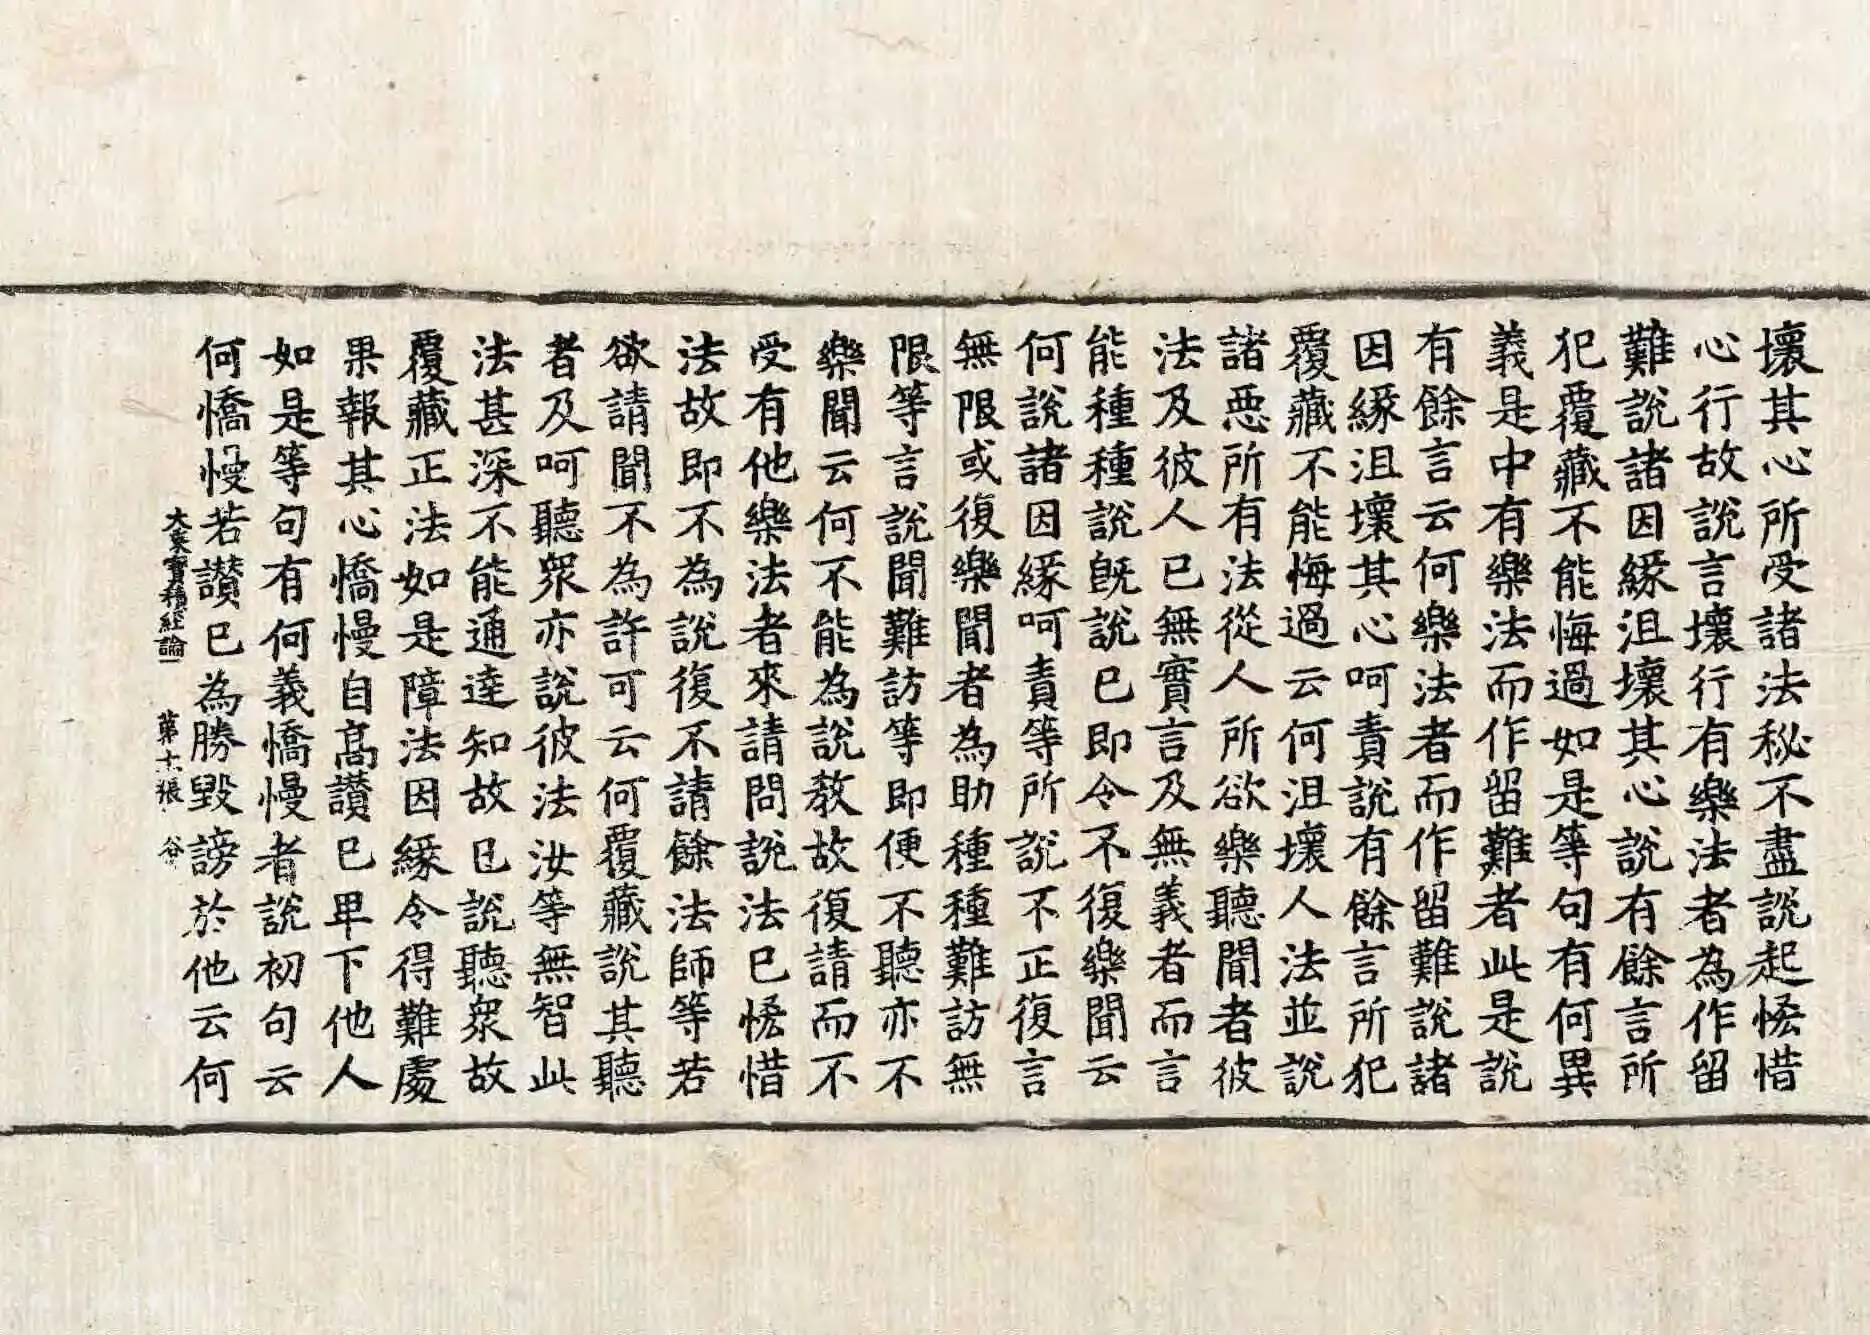 壞其心所受諸法秘不盡說起悋惜
心行故說言壞行有樂法者為作留
難說諸因緣沮壞其心說有餘言所
犯覆藏不能悔過如是等句有何異
義是中有樂法而作留難者此是說
有餘言云何樂法者而作留難說諸
因緣沮壞其心呵責說有餘言所犯
覆藏不能悔過云何沮壞人法並說
諸惡所有法從人所欲樂聽聞者彼
法及彼人已無實言及無義者而言
能種種說既說已即令不復樂聞云
何說諸因緣呵責等所說不正復言
無限或復樂聞者為助種種難訪無
限等言說聞難訪等即便不聽亦不
樂聞云何不能為說教故復請而不
受有他樂法者來請問說法已悋惜
法故即不為說復不請餘法師等若
欲請聞不為許可云何覆藏說其聽
者及呵聽眾亦說彼法汝等無智此
法甚深不能通達知故已說聽眾故
覆藏正法如是障法因緣令得難處
果報其心憍慢自高讚已卑下他人
如是等句有何義憍慢者說初句云
何憍慢若讚已為勝毀謗於他云何
大乘寶積經論一 第十張 谷